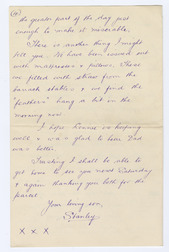 the greater part of the day just
enough to make it miserable.
There is another thing I might
tell you. We have been issued out
with mattresses & pillows. These
are filled with straw from the
barrack stables & we find the
"feathers" hang a bit in the
morning now.
I hope Connie is keeping
well & was glad to hear Dad
was better.
Trusting I shall be able to
get home to see you next Saturday
& again thanking you both for the
parcel
Your loving son,
Stanley
X X X